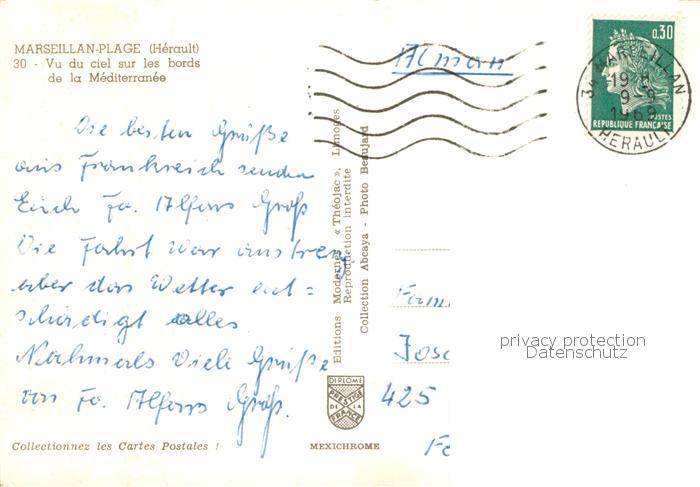 MARSEILLAN-PLAGE (Hérault)
30 - Vu du ciel sur les bords
de la Méditerranée
Die besten Grüße
aus Frankreich senden
Euch Fa. Alfons Groß
Die Fahrt war anstreng
aber das Wetter ent=
schädigt alles
Nochmals Viele Grüße
von Fa. Alfons Groß.
Collectionnez les Cartes Postales !
Editions Modernes « Théojac », Limoges
Reproduction interdite
Collection Abcaya - Photo Beaujard
DIPLOME
PRESTIGE
DE LA
FRANCE
MEXICHROME
0,30
POSTES
REPUBLIQUE FRANÇAISE
34 MARSEILLAN
19 H
9-6
1969
HERAULT
Fam
Jose
425
privacy protection
Datenschutz